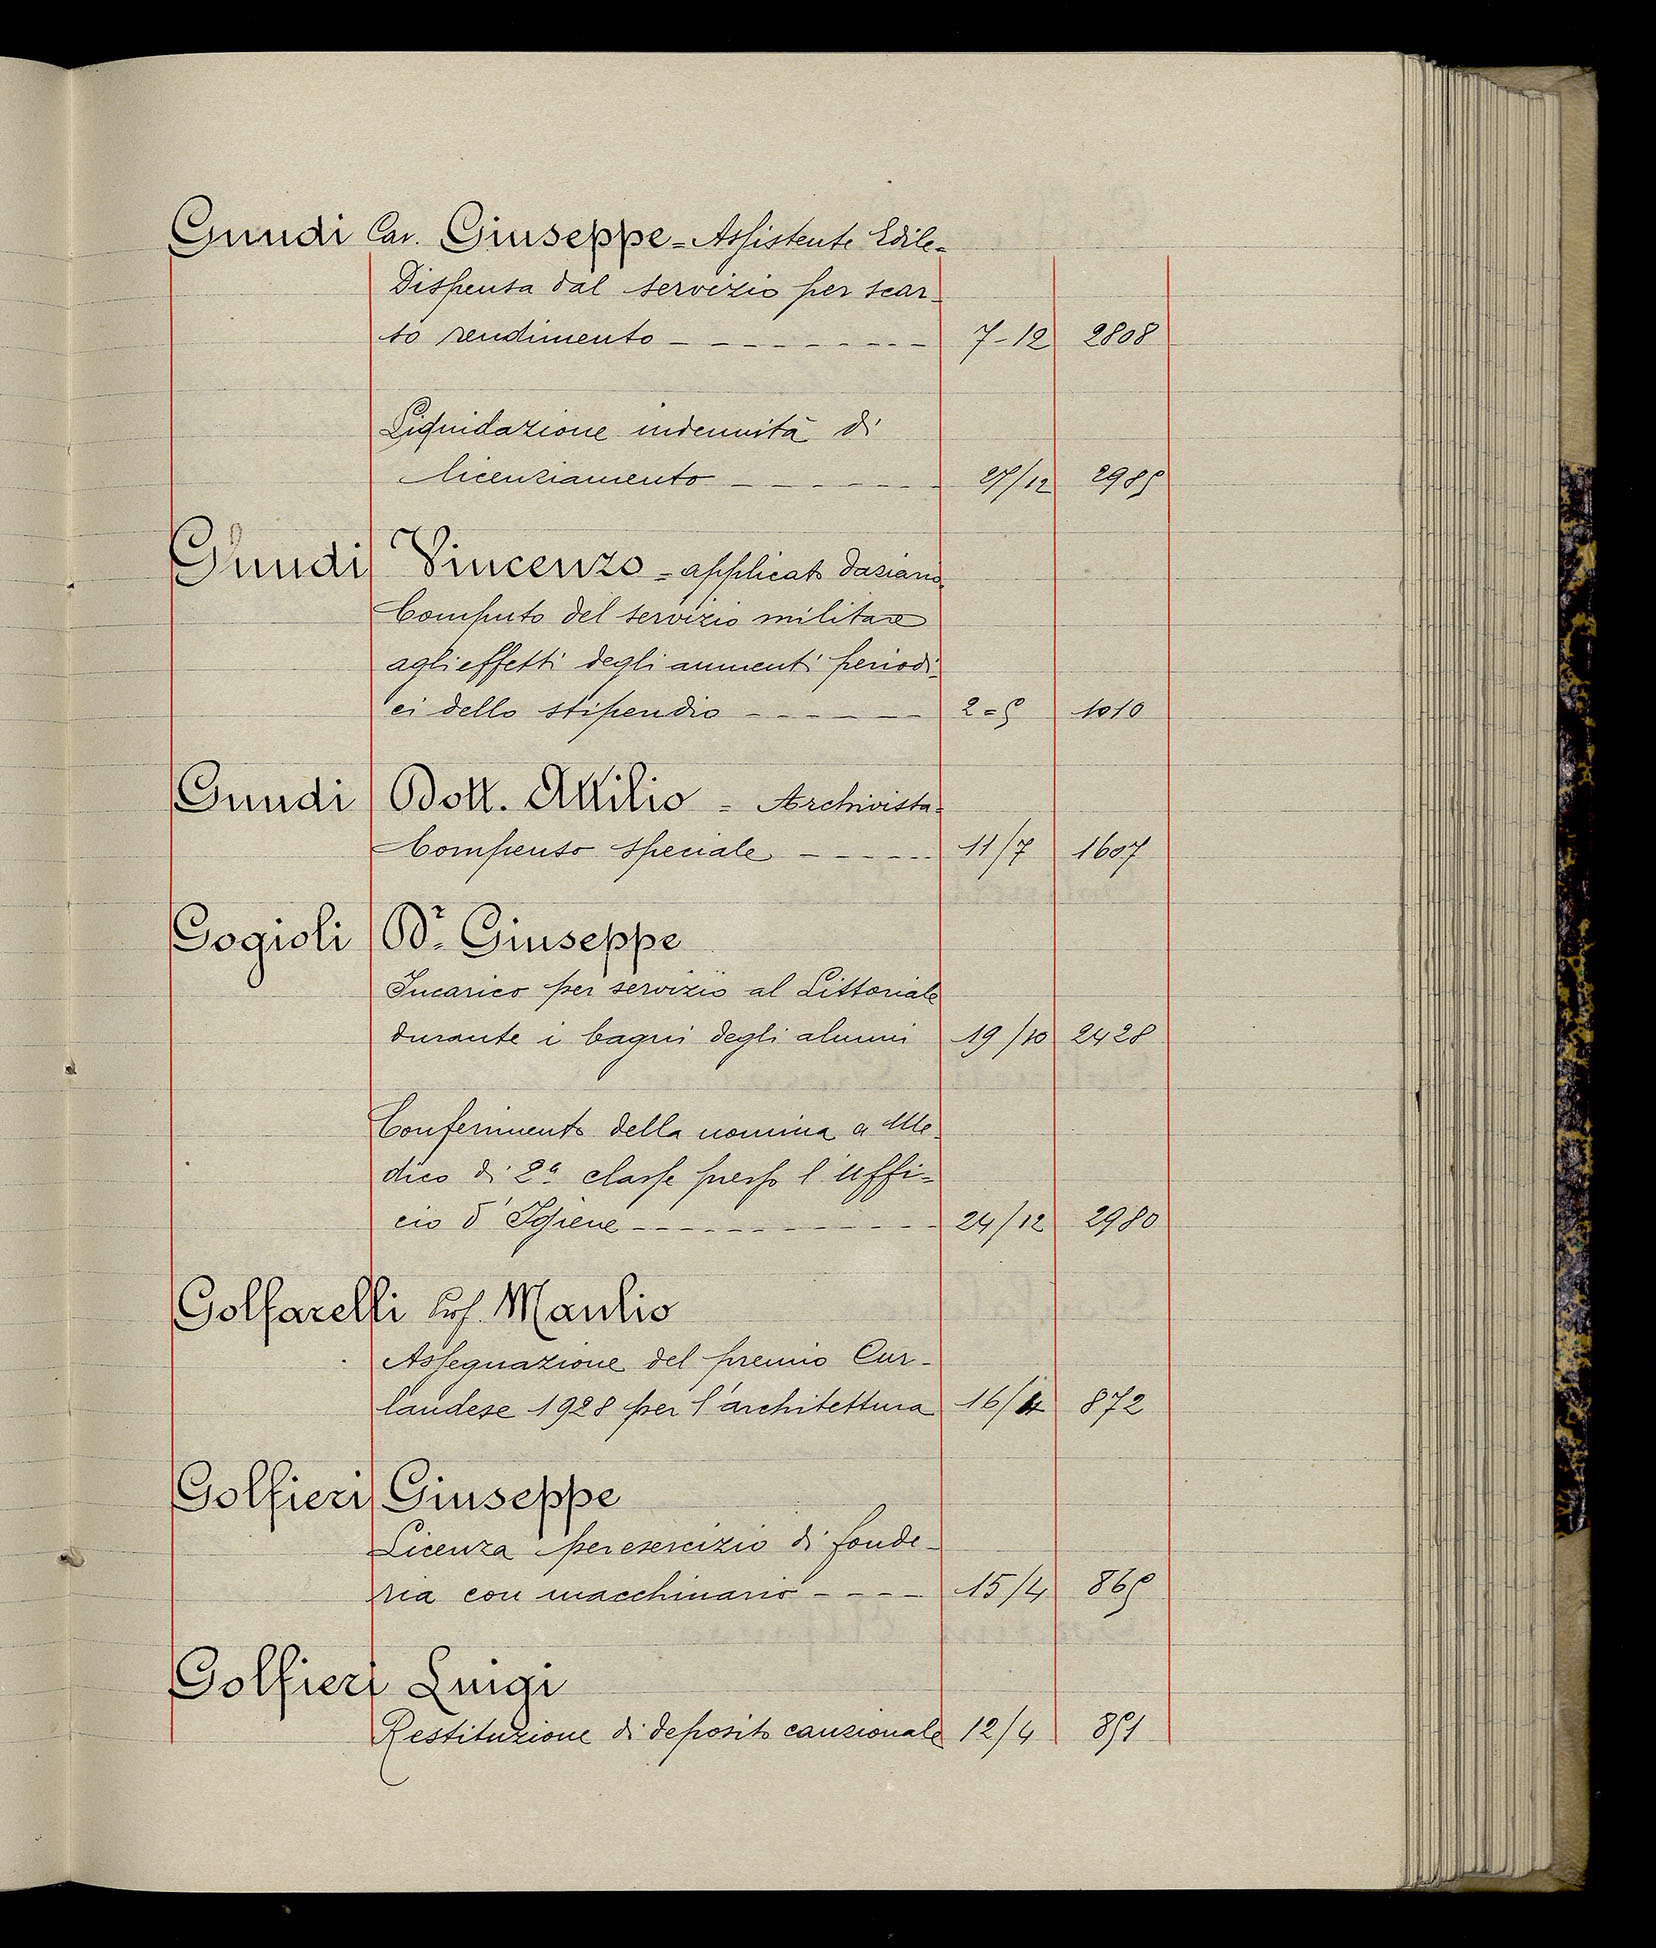 Gnudi Cav. Giuseppe = Assistente Edile =
Dispensa dal servizio per scar-
so rendimento - - - - - - - - - 7-12 2808
Liquidazione indennità di
licenziamento - - - - - - - 27/12 2985
Gnudi Vincenzo = applicato daziario.
Computo del servizio militare
agli effetti degli aumenti periodi-
ci dello stipendio - - - - - - 2=5 1010
Gnudi Dott. Attilio = Archivista =
Compenso speciale - - - - - - 11/7 1607
Gogioli Dr. Giuseppe
Incarico per servizio al Littoriale
durante i bagni degli alunni 19/10 2428
Conferimento della nomina a Me-
dico di 2a classe presso l'Uffi=
cio d'Igiene - - - - - - - - - - - - 24/12 2980
Golfarelli Prof. Manlio
Assegnazione del premio Cur-
landese 1928 per l'architettura 16/4 872
Golfieri Giuseppe
Licenza per esercizio di fonde-
ria con macchinario - - - - 15/4 865
Golfieri Luigi
Restituzione di deposito cauzionale 12/4 851